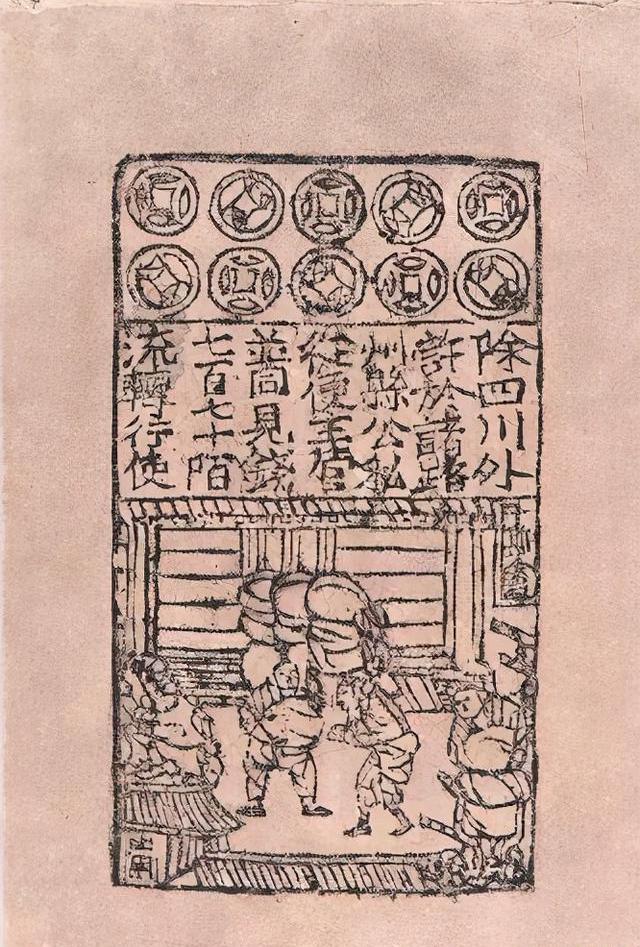 除四川外
許於諸路
州縣公私
從便主管
並同見錢
七百七十陌
流轉行使
千斯倉